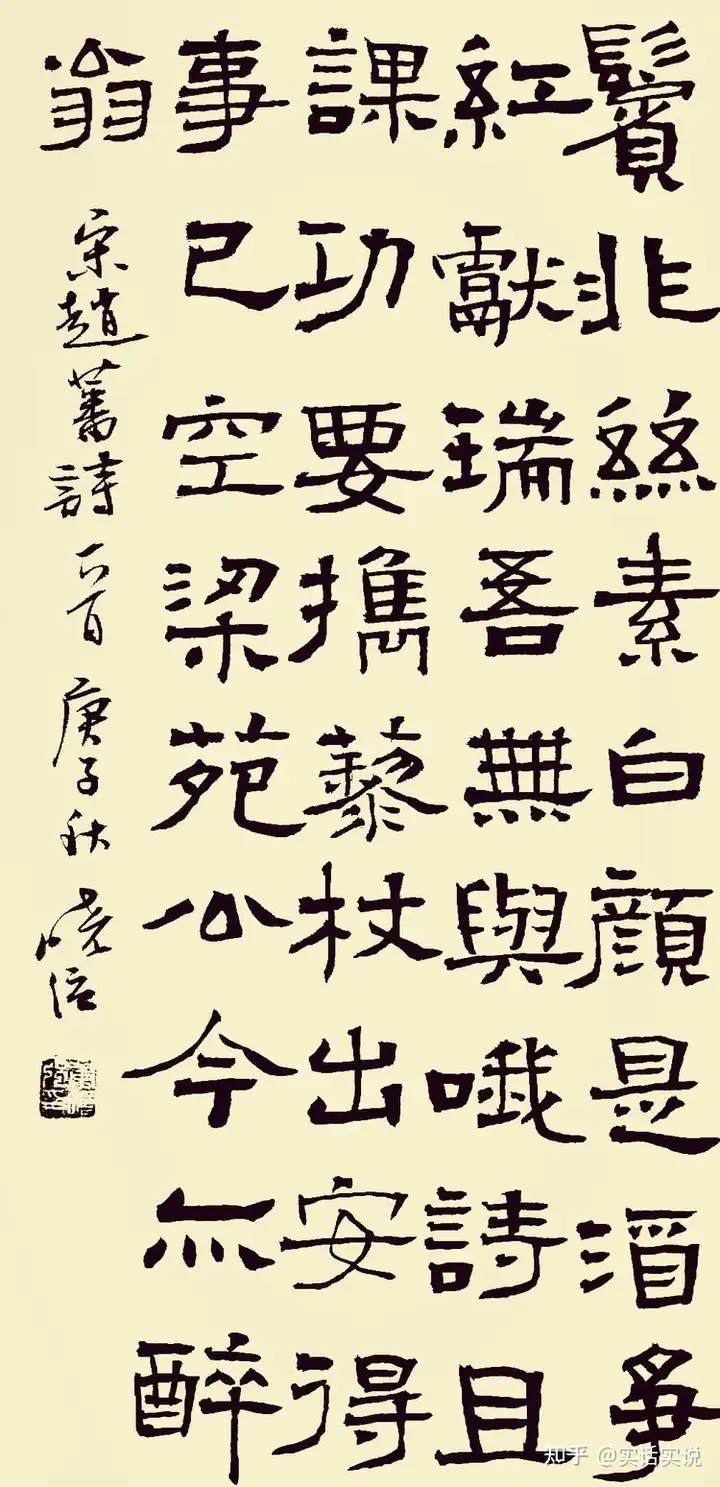 鬢非絲素白顔是酒爭
紅獻瑞吾無與哦詩且
課功要攜藜杖出安得
事已空梁苑公今亦醉
翁
宋趙蕃詩一首 庚子秋 曉信
知乎 @实话实说